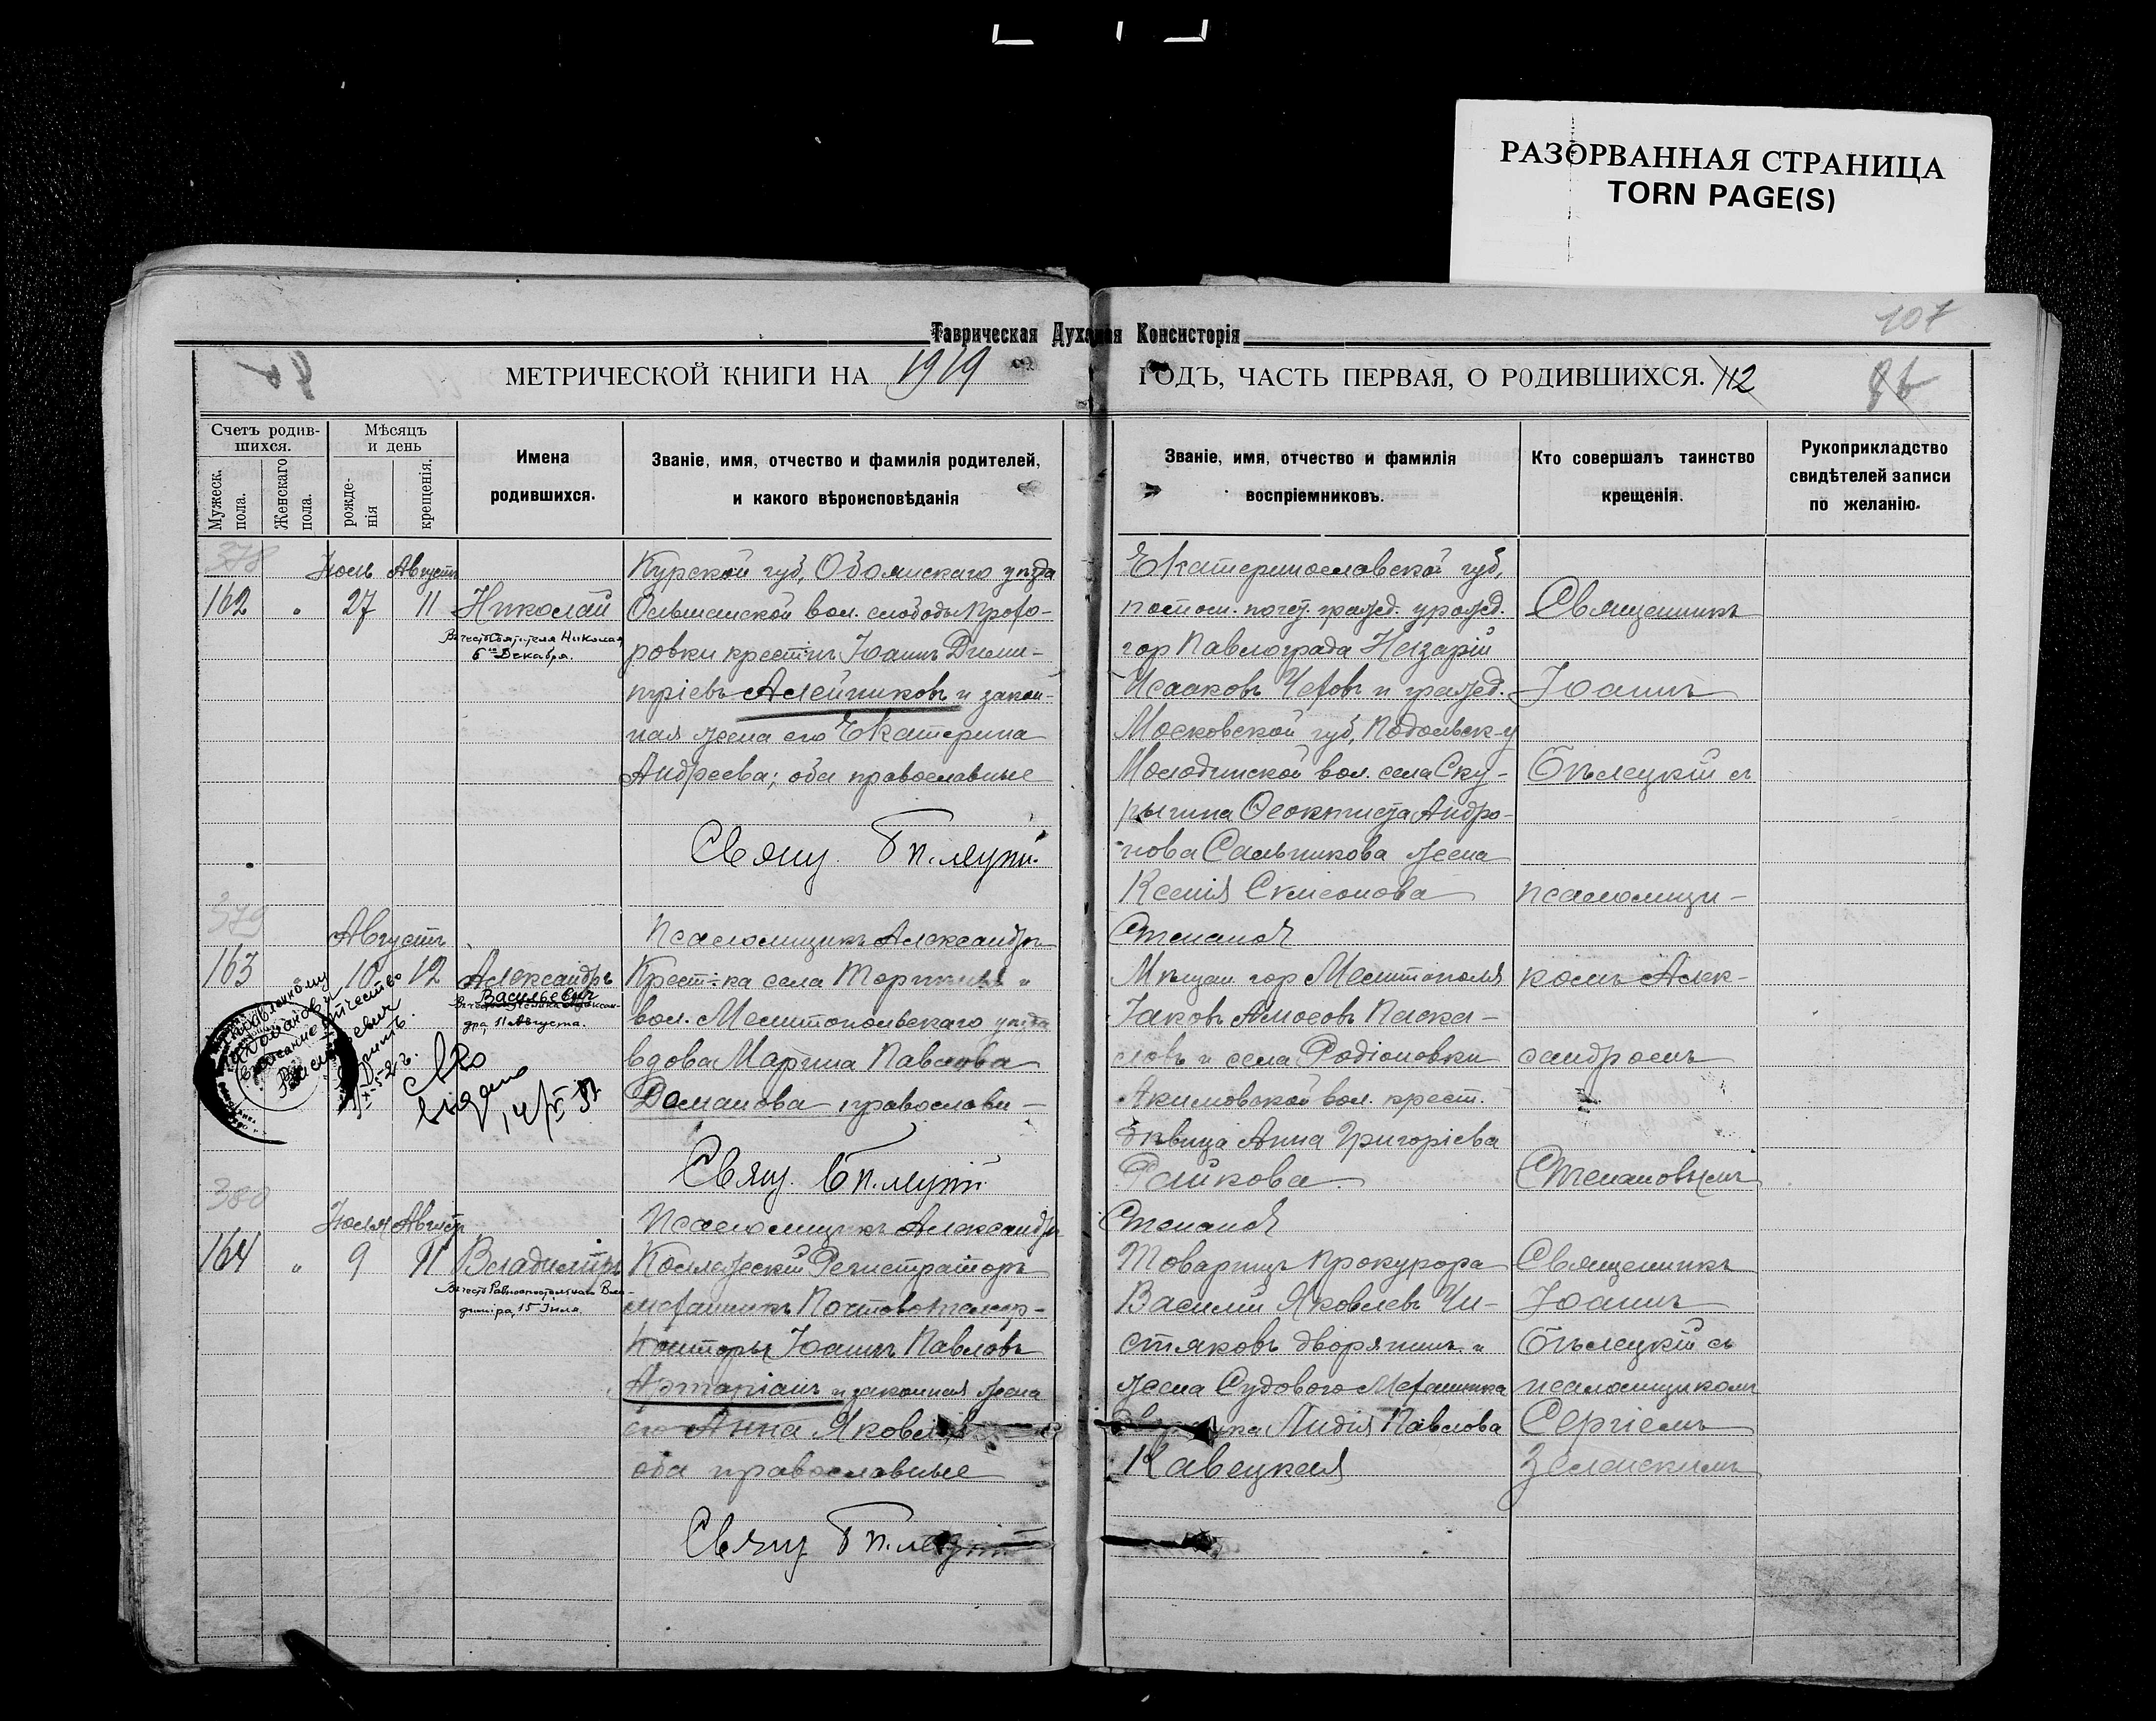 РАЗОРВАННАЯ СТРАНИЦА
TORN PAGE(S)
107
Таврическая Духовная Консисторія
МЕТРИЧЕСКОЙ КНИГИ НА 1919 ГОДЪ, ЧАСТЬ ПЕРВАЯ, О РОДИВШИХСЯ. 112
Счетъ родив-
шихся.
Мужеск. пола.
Женскаго пола.
Мѣсяцъ
и день
рожде-
нія
крещенія.
Имена
родившихся.
Званіе, имя, отчество и фамилія родителей,
и какого вѣроисповѣданія
Званіе, имя, отчество и фамилія
воспріемниковъ.
Кто совершалъ таинство
крещенія.
Рукоприкладство
свидѣтелей записи
по желанію.
378
Іюль Августъ
162 " 27 11 Николай
6го Декабря.
Курской губ, Обоянскаго уѣзда
Ольшанской вол. слободы Прохо-
ровки крест-нъ Іоаннъ Дими-
тріевъ Алейниковъ и закон-
ная жена его Екатерина
Андреева; оба православные
Свящ. Бѣлецкій
Екатеринославской губ,
потом. почет. гражд. урожд.
гор Павлограда Назарій
Исааковъ Чеховъ и гражд.
Московской губ, Подольск-у
Молодинской вол. села Ску-
рыгина Ѳеоктиста Андро-
нова Сальникова жена
Ксенія Симеонова
Священникъ
Іоаннъ
Бѣлецкій съ
псаломщи-
379
Августъ
163 10 12 Александръ
Васильевичъ
дра, 11 Августа.
Псаломщикъ Александръ
Степановъ
Крест-ка села
вол. Мелитопольскаго уѣзда
вдова Марина Павлова
Доманова православн-
Свящ. Бѣлецкій
Мѣщан. гор Мелитополя
Іаковъ Амосовъ Паска-
ловъ и села Родіоновки
Акимовской вол. крест.
дѣвица Анна Григоріева
Райкова
комъ Алек-
сандромъ
Степановымъ
380
Іюля Августъ
164 " 9 11 Владиміръ
Въ честь Равноапостольнаго Вла-
диміра, 15 Іюля.
Псаломщикъ Александръ
Степановъ
Коллежскій Регистраторъ
механикъ Почтово телегр-
конторы Іоаннъ Павловъ
и законная жена
его Анна Яковлева
оба православные
Свящ Бѣлецкій
Товарищъ Прокурора
Василій Яковлевъ Чи-
стяковъ дворянинъ и
жена Судового Механика
Лидія Павлова
Кавецкая
Священникъ
Іоаннъ
Бѣлецкій съ
псаломщикомъ
Сергіемъ
Зеленскимъ